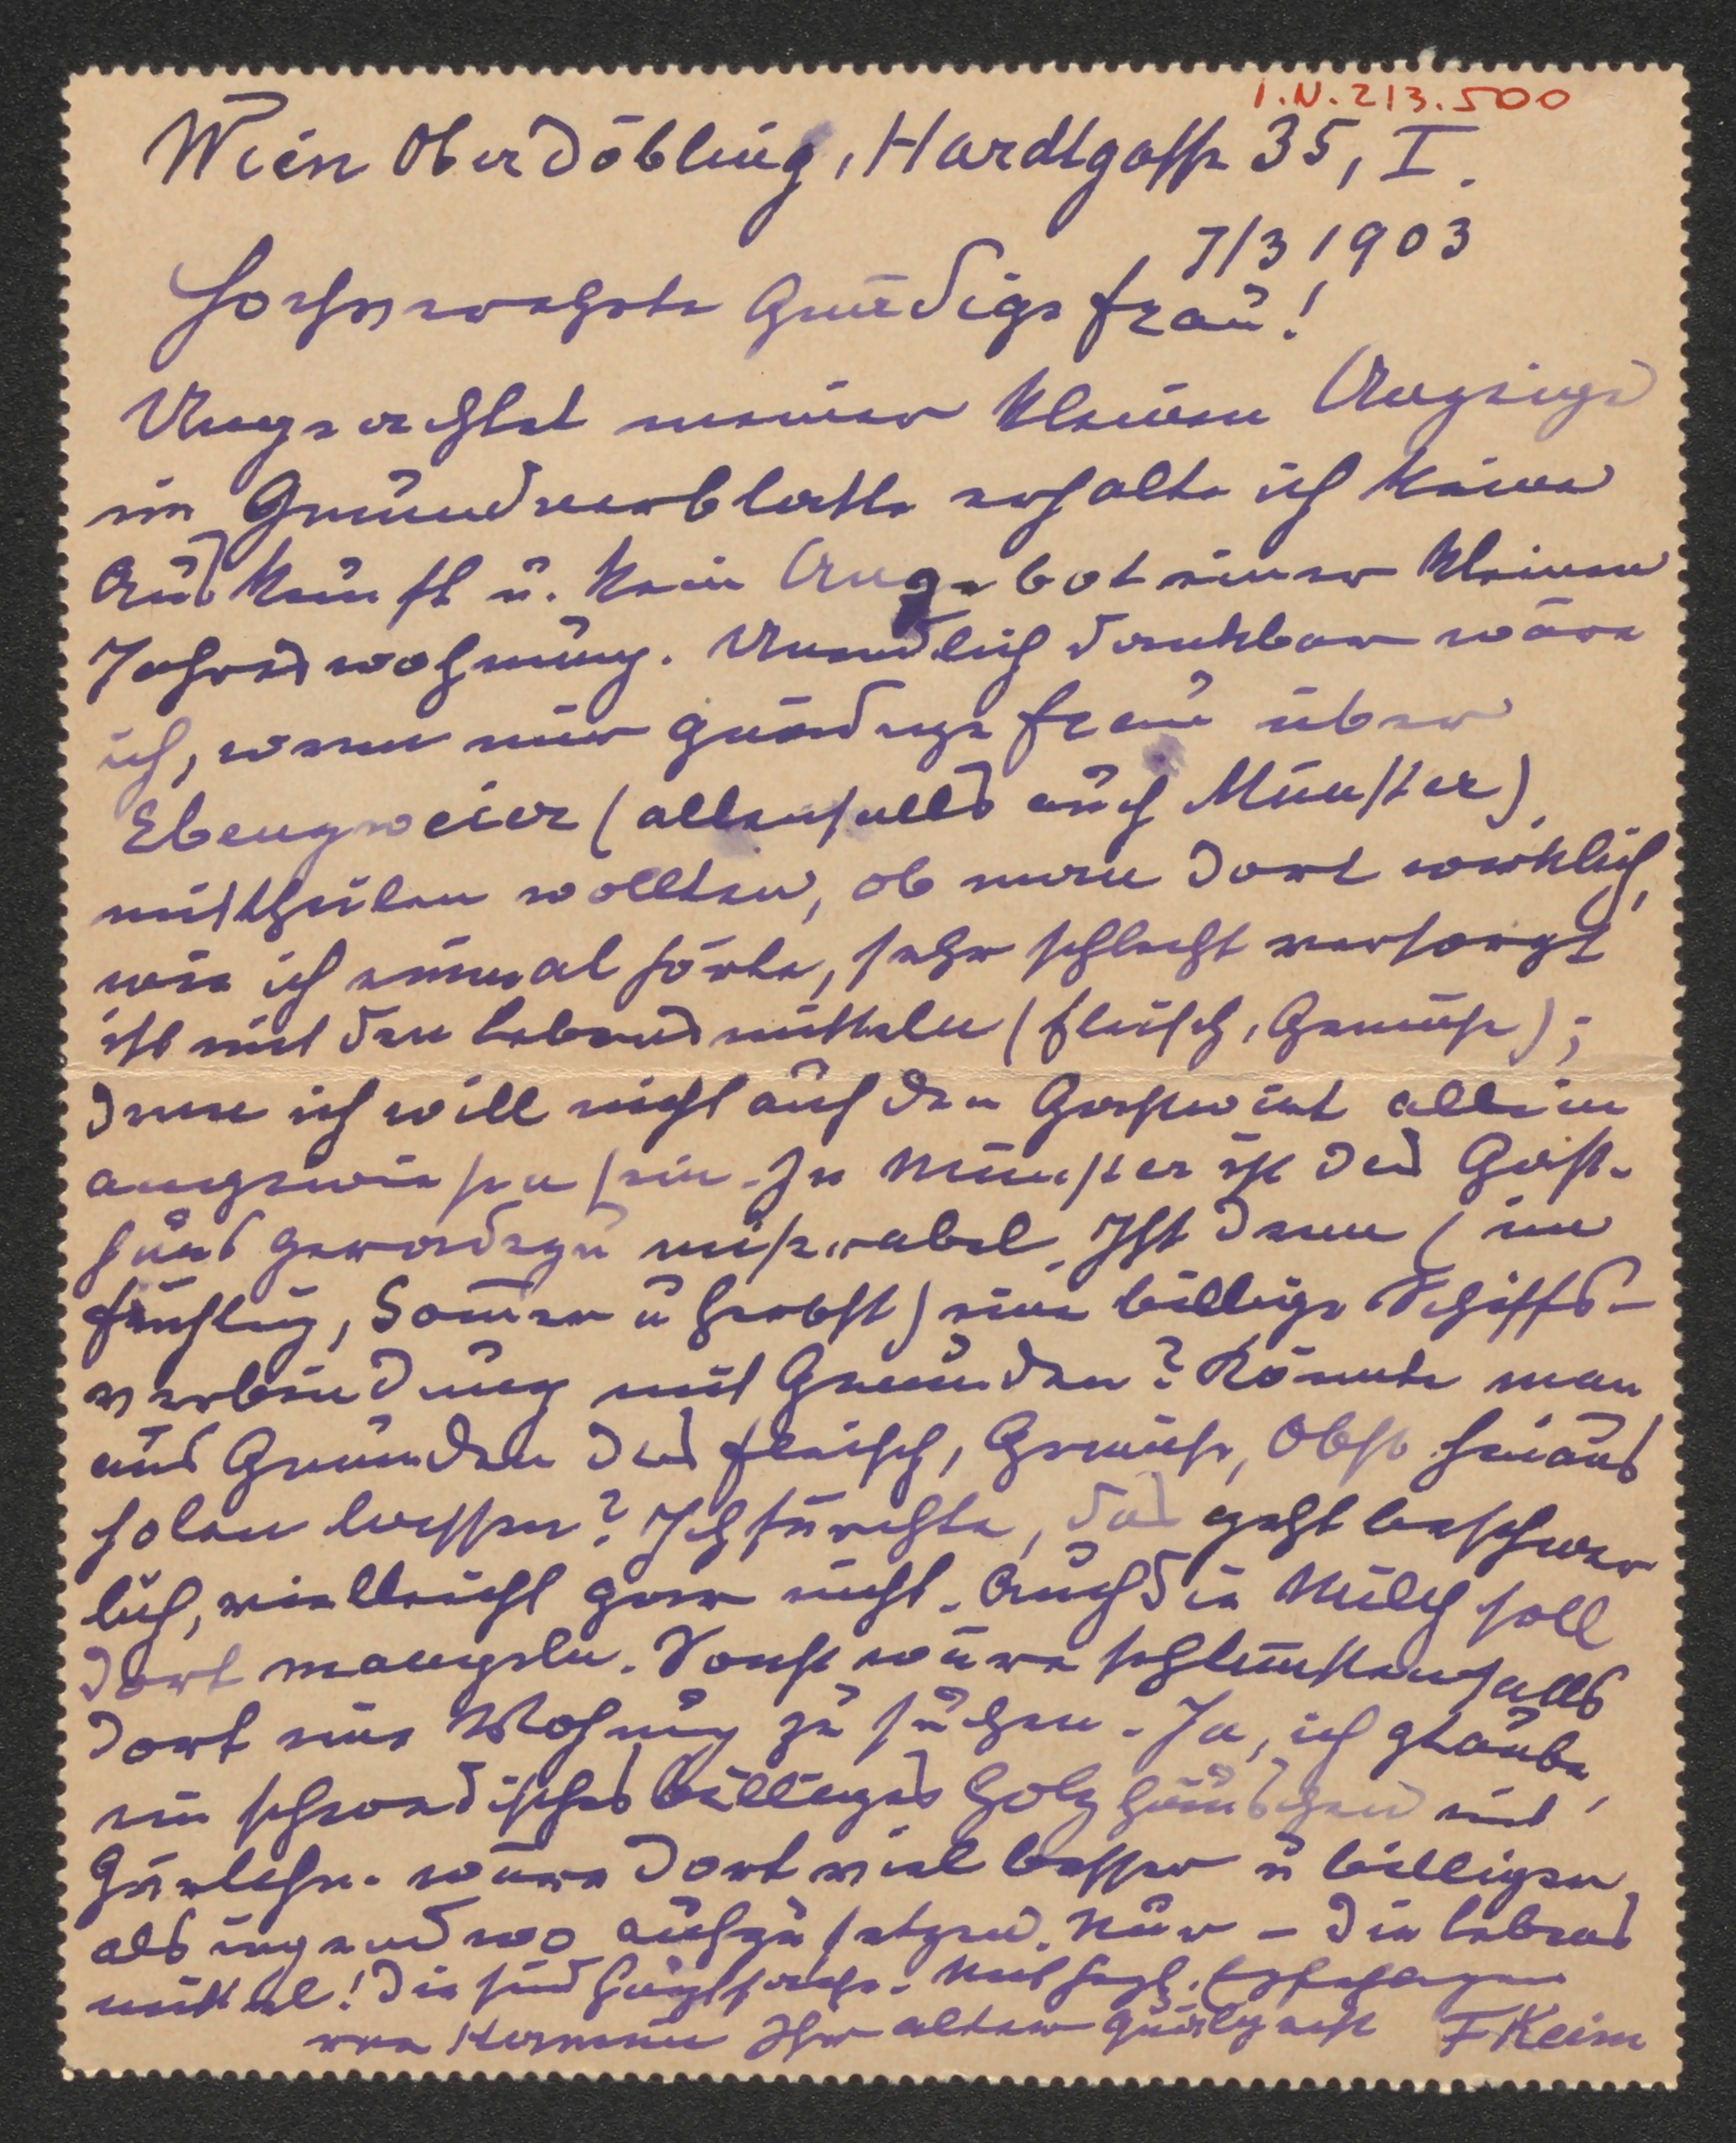 I.N. 213.500
Wien Oberdöbling, Hardtgasse 35, I.
7/3 1903
Hochverehrte Gnädige Frau!
Ungeachtet meiner kleinen Anzeige
im Gmundnerblatte erhalte ich keine
Auskunft u. kein Angebot einer kleinen
Jahreswohnung. Unendlich dankbar wäre
ich, wenn mir gnädige Frau über
Ebenzweier (allenfalls auch Münster)
mittheilen wollten, ob man dort wirklich,
wie ich einmal hörte, sehr schlecht versorgt
ist mit den Lebensmitteln (Fleisch, Gemüse);
denn ich will nicht auf den Gastwirt allein
angewiesen sein. In Münster ist das Gast-
haus geradezu miserabel. Ist denn (im
Frühling, Sommer u Herbst) eine billige Schiffs-
verbindung mit Gmunden? Könnte man
aus Gmunden das Fleisch, Gemüse, Obst hinaus
holen lassen? Ich fürchte, das geht beschwer
lich, vielleicht gar nicht. Auch die Milch soll
dort mangeln. Sonst wäre schlimmstenfalls
dort eine Wohnung zu suchen. Ja, ich glaube,
ein schwedisches billiges Holzhäuschen mit
Gärtchen wäre dort viel besser u billiger
als irgendwo aufzusetzen. Nur – die Lebens
mittel! Die sind Hauptsache. Mit herzl.
von Hermine Ihr alter Quälgeist F Keim